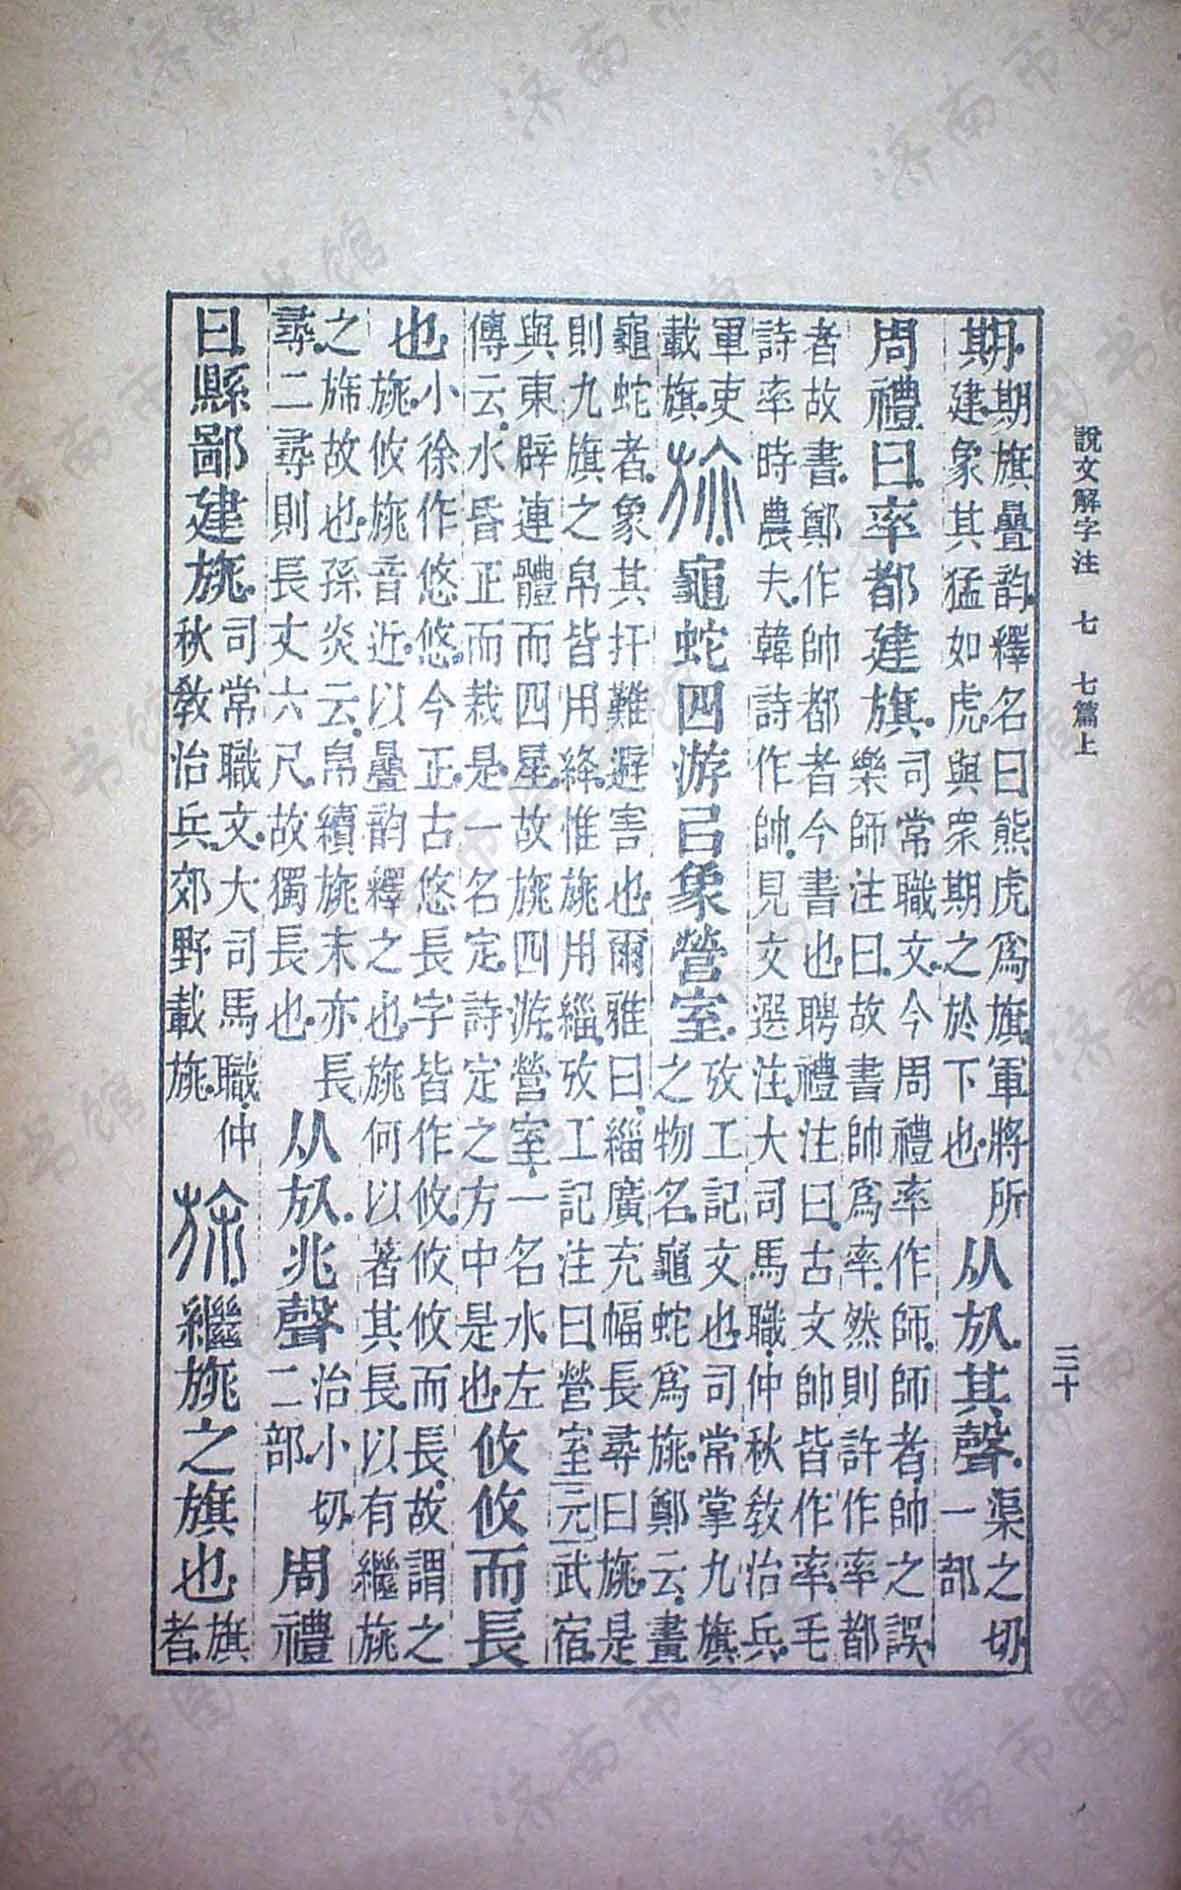 說文解字注 七 七篇上 三十
期期旗疊韵釋名曰熊虎爲旗軍將所
建象其猛如虎與衆期之於下也
从㫃其聲
渠之切
一部
周禮曰率都建旗
司常職文今周禮率作師師者帥之誤
樂師注曰故書帥爲率然則許作率都
者故書鄭作帥都者今書也聘禮注曰古文帥皆作率毛
詩率時農夫韓詩作帥見文選注大司馬職仲秋敎治兵
軍吏
載旗
旐龜蛇四游㠯象營室
攷工記文也司常掌九旗
之物名龜蛇爲旐鄭云畫
龜蛇者象其扞難避害也爾雅曰緇廣充幅長尋曰旐是
則九旗之帛皆用絳惟旐用緇攷工記注曰營室元武宿
與東辟連體而四星故旐四游營室一名水左
傳云水昏正而栽是一名定詩定之方中是也
攸攸而長
也
小徐作悠悠今正古悠長字皆作攸攸攸而長故謂之
旐攸旐音近以疊韵釋之也旐何以著其長以有繼旐
之旆故也孫炎云帛續旐末亦長
尋二尋則長丈六尺故獨長也
从㫃兆聲
治小切
二部
周禮
曰縣鄙建旐
司常職文大司馬職仲
秋敎治兵郊野載旐
旆繼旐之旗也
旗
者